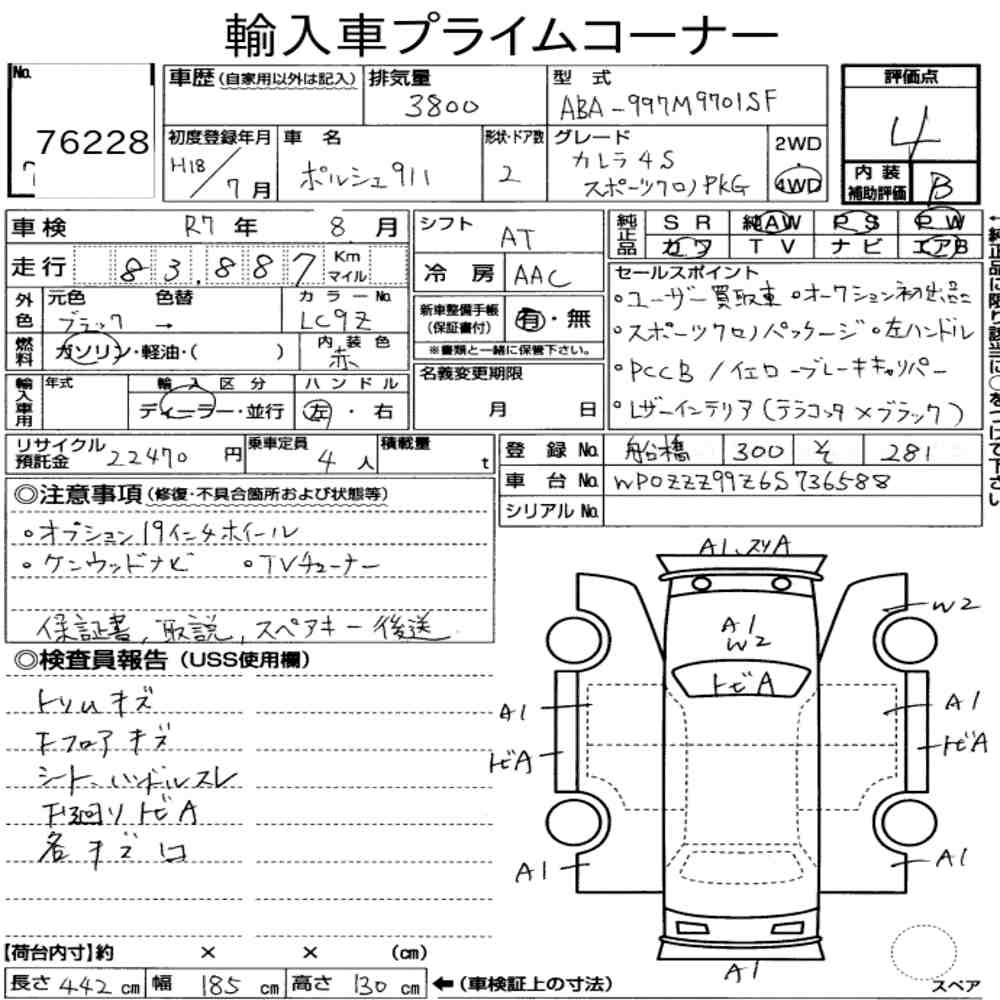 輸入車プライムコーナー
No.
76228
車歴(自家用以外は記入)
排気量
3800
型式
ABA-997M9701SF
評価点
4
初度登録年月
H18/7月
車名
ポルシェ911
形状・ドア数
2
グレード
カレラ4S
スポーツクロノPKG
2WD
・
4WD
内装
補助評価
B
車検 R7年 8月
走行 83,887 Km
マイル
シフト AT
冷房 AAC
純正品
SR 純AW PS PW
カワ TV ナビ エアB
外色
元色 色替
ブラック →
カラーNo.
LC9Z
燃料
ガソリン・軽油・( )
内装色
赤
新車整備手帳
(保証書付)
有・無
※書類と一緒に保管下さい。
セールスポイント
◦ユーザー買取車 ◦オークション初出品
◦スポーツクロノパッケージ ◦左ハンドル
◦PCCB/イエローブレーキキャリパー
◦レザーインテリア(テラコッタ×ブラック)
←純正品に限り該当に○をつけて下さい
輸入車用
年式
輸入区分
ディーラー・並行
ハンドル
左・右
名義変更期限
月 日
リサイクル
預託金 22470円
乗車定員
4人
積載量
t
登録No. 船橋 300 そ 281
車台No. WP0ZZZ99Z6S736588
シリアルNo.
◎注意事項(修復・不具合箇所および状態等)
◦オプション19インチホイール
◦ケンウッドナビ ◦TVチューナー
保証書,取説,スペアキー後送
◎検査員報告(USS使用欄)
トリムキズ
Fフロアキズ
シート、ハンドルスレ
下廻りトビA
各キズ凹
A1、スリA
A1
W2
トビA
W2
A1
A1
トビA
トビA
A1
A1
A1
スペア
【荷台内寸】約 × × (cm)
長さ 442cm 幅 185cm 高さ 130cm ←(車検証上の寸法)